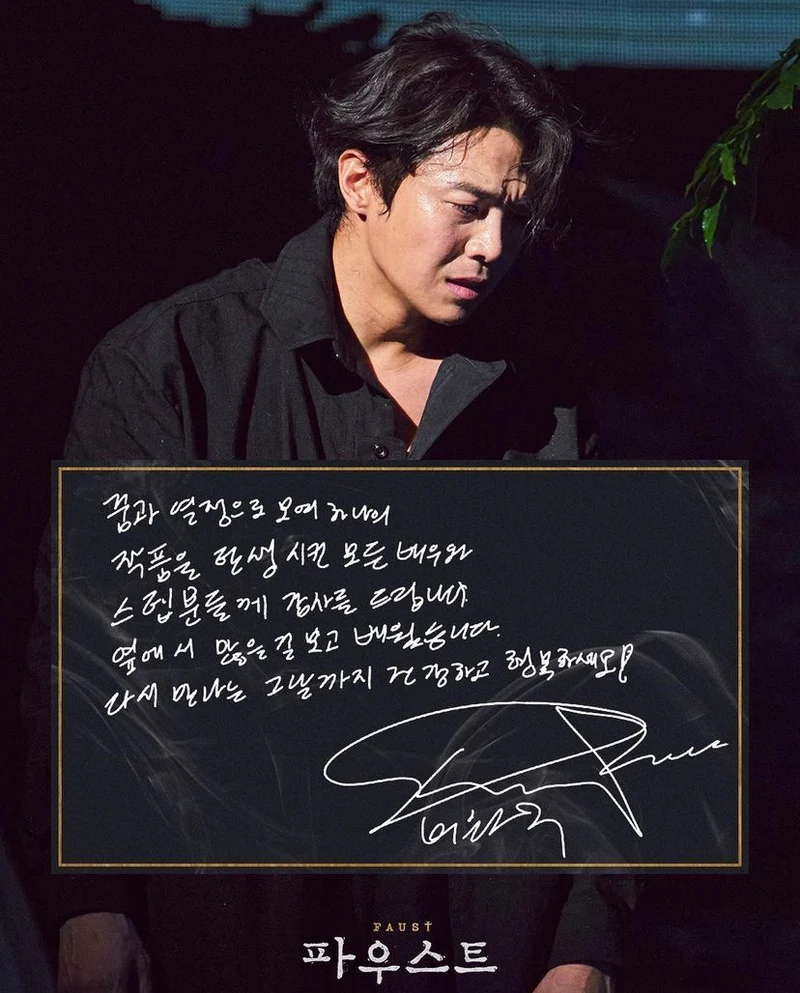 꿈과 열정으로 모여 하나의
작품을 탄생 시킨 모든 배우와
스텝분들께 감사를 드립니다
옆에서 많은걸 보고 배웠습니다.
다시 만나는 그날까지 건강하고 행복하세요!
FAUST
파우스트